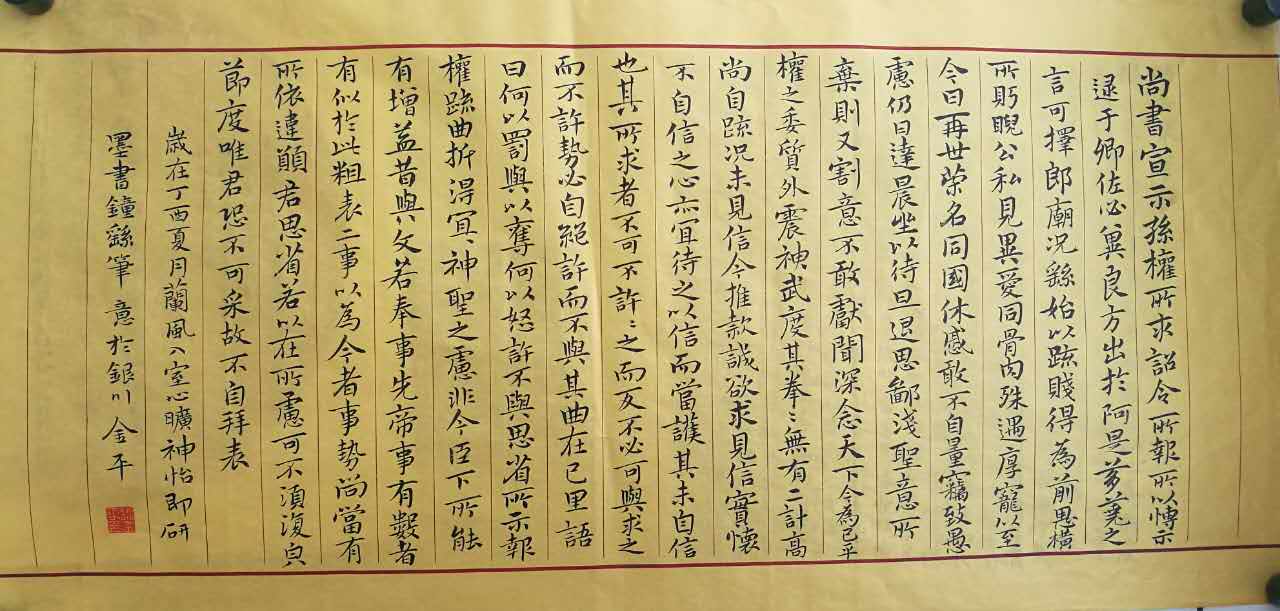 尚書宣示孫權所求詔令所報所以博示
逮于卿佐必冀良方出於阿是芻蕘之
言可擇郎廟況繇始以疏賤得為前恩橫
所眄睨公私見異愛同骨肉殊遇厚寵以至
今日再世榮名同國休慼敢不自量竊致愚
慮仍日達晨坐以待旦退思鄙淺聖意所
棄則又割意不敢獻聞深念天下今為已平
權之委質外震神武度其拳〻無有二計高
尚自疏況未見信今推款誠欲求見信實懷
不自信之心亦宜待之以信而當護其未自信
也其所求者不可不許〻之而反不必可與求之
而不許勢必自絕許而不與其曲在己里語
曰何以罰與以奪何以怒許不與思省所示報
權疏曲折得宜〻神聖之慮非今臣下所能
有增益昔與文若奉事先帝事有數者
有似於此粗表二事以為今者事勢尚當有
所依違顧君思省若以在所慮可不須復皃
節度唯君恐不可采故不自拜表
歲在丁酉夏月蘭風入室心曠神怡即研
墨書鐘繇筆意於銀川金平